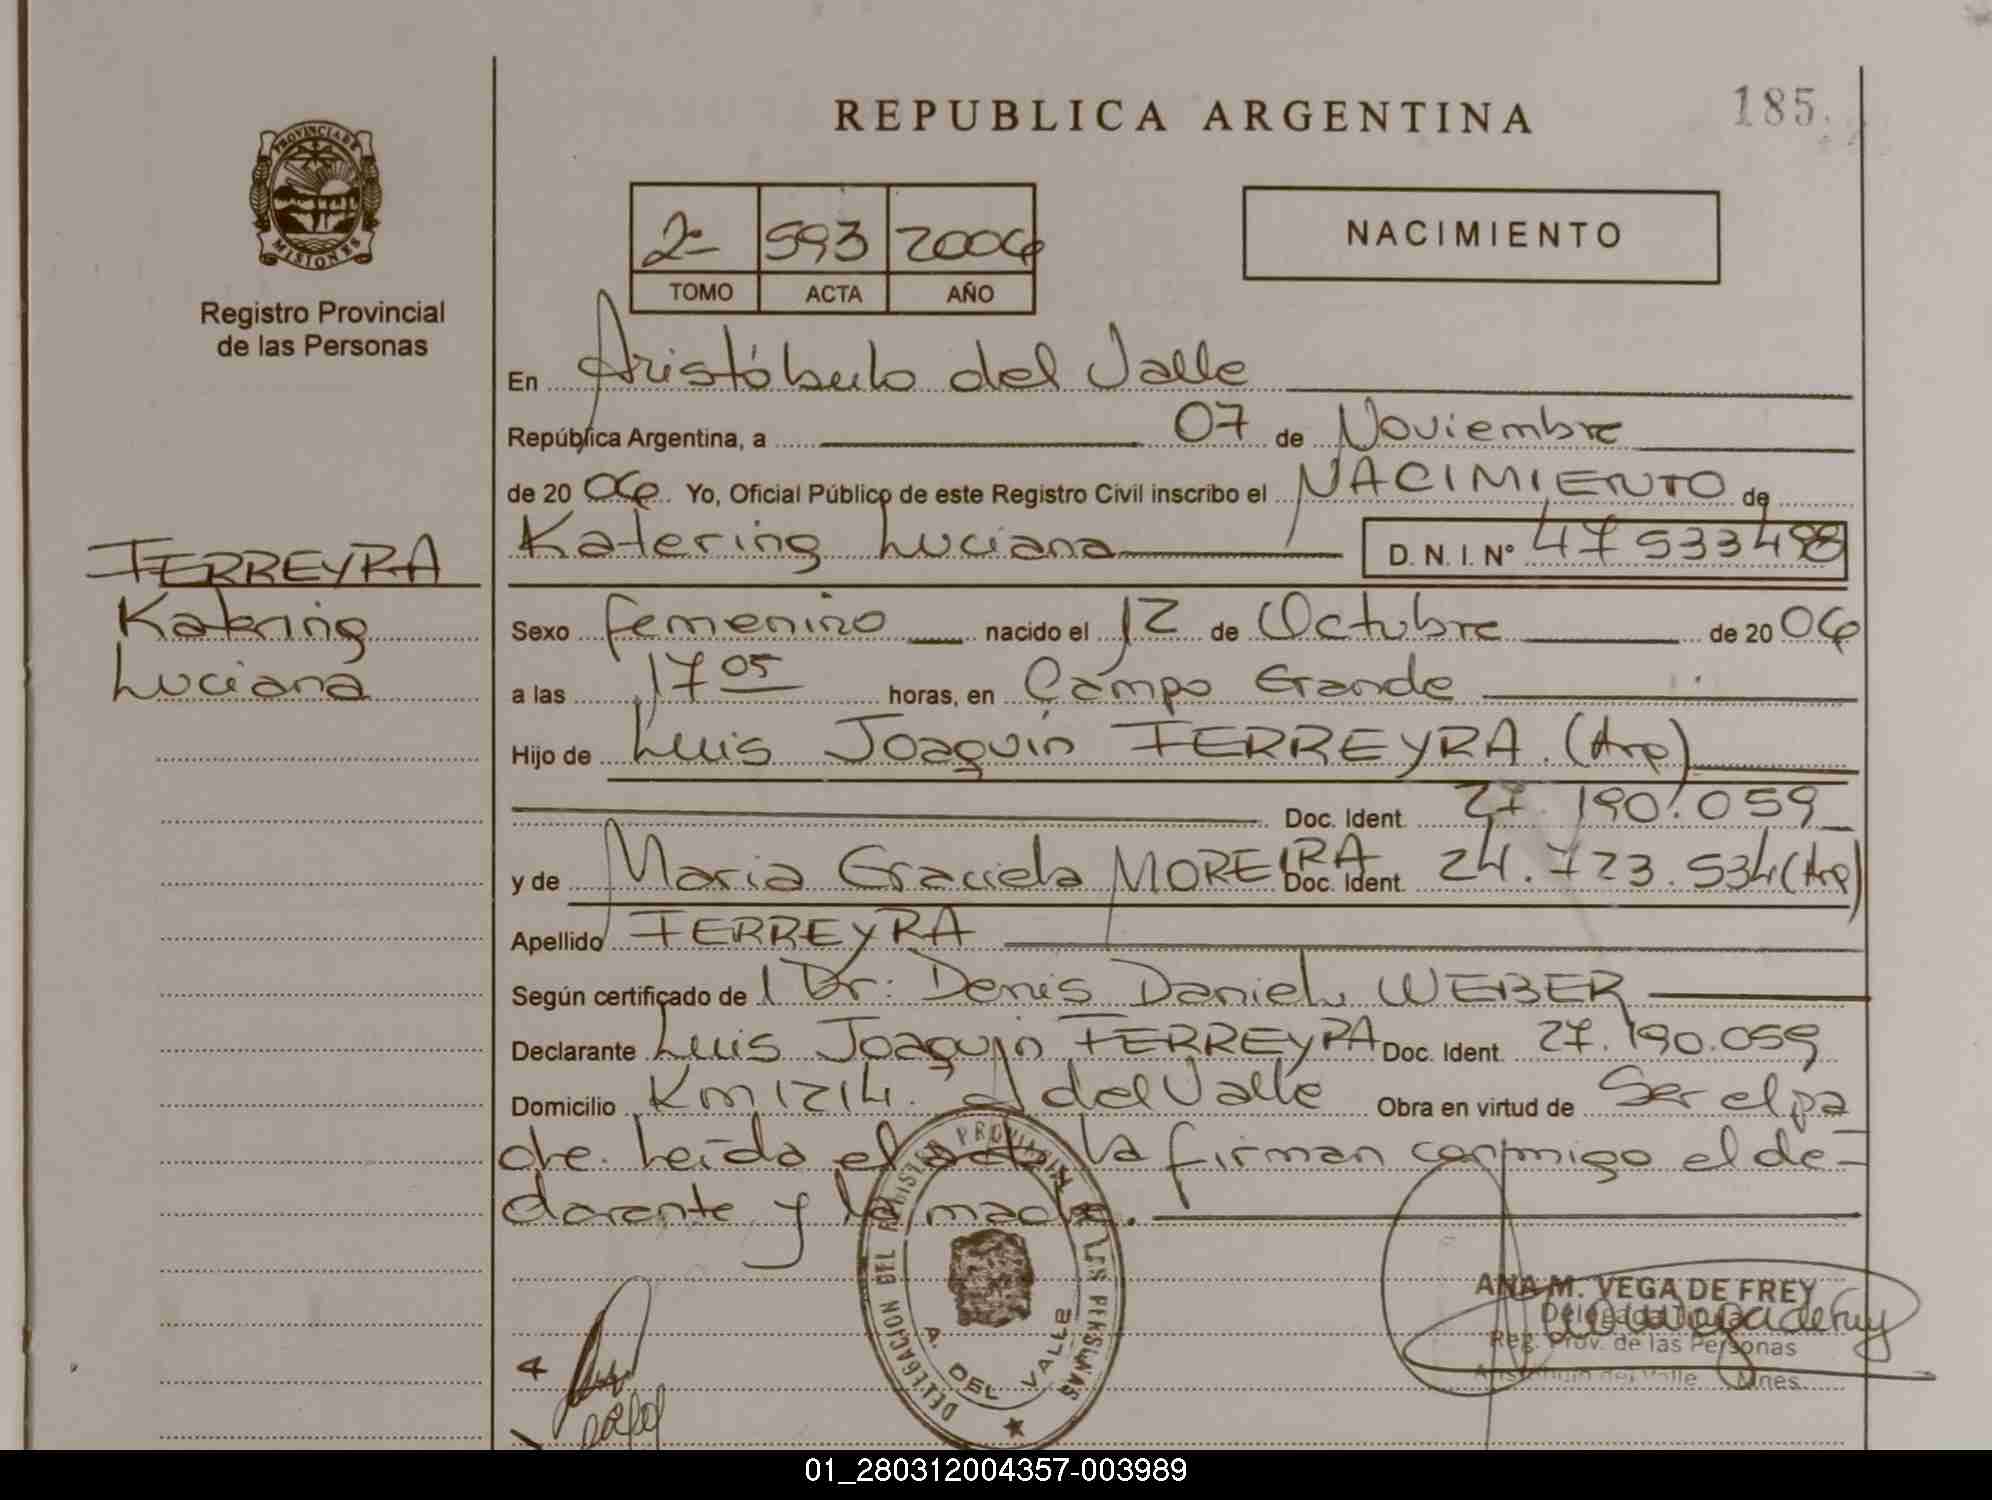 REPUBLICA ARGENTINA
185.
PROVINCIA DE
MISIONES
Registro Provincial
de las Personas
2º 593 2006
TOMO ACTA AÑO
NACIMIENTO
En Aristóbulo del Valle
República Argentina, a 07 de Noviembre
de 2006 Yo, Oficial Público de este Registro Civil inscribo el NACIMIENTO de
Katering Luciana D. N. I. Nº 47533498
FERREYRA
Katering
Luciana
Sexo femenino nacido el 12 de Octubre de 2006
a las 17 05 horas, en Campo Grande
Hijo de Luis Joaquín FERREYRA (Arg)
Doc. Ident. 27.190.059
y de Maria Graciela MOREIRA Doc. Ident. 24.723.534 (Arg)
Apellido FERREYRA
Según certificado de Dr: Denis Daniel WEBER
Declarante Luis Joaquín FERREYRA Doc. Ident. 27.190.059
Domicilio Km 1214. A del Valle Obra en virtud de Ser el pa
dre. Leída el acta la firman conmigo el de-
clarante y la madre.
DELEGACION DEL REGISTRO PROVINCIAL DE LAS PERSONAS
A. DEL VALLE
ANA M. VEGA DE FREY
Delegada
Reg. Prov. de las Personas
Aristóbulo del Valle Mnes.
01_280312004357-003989